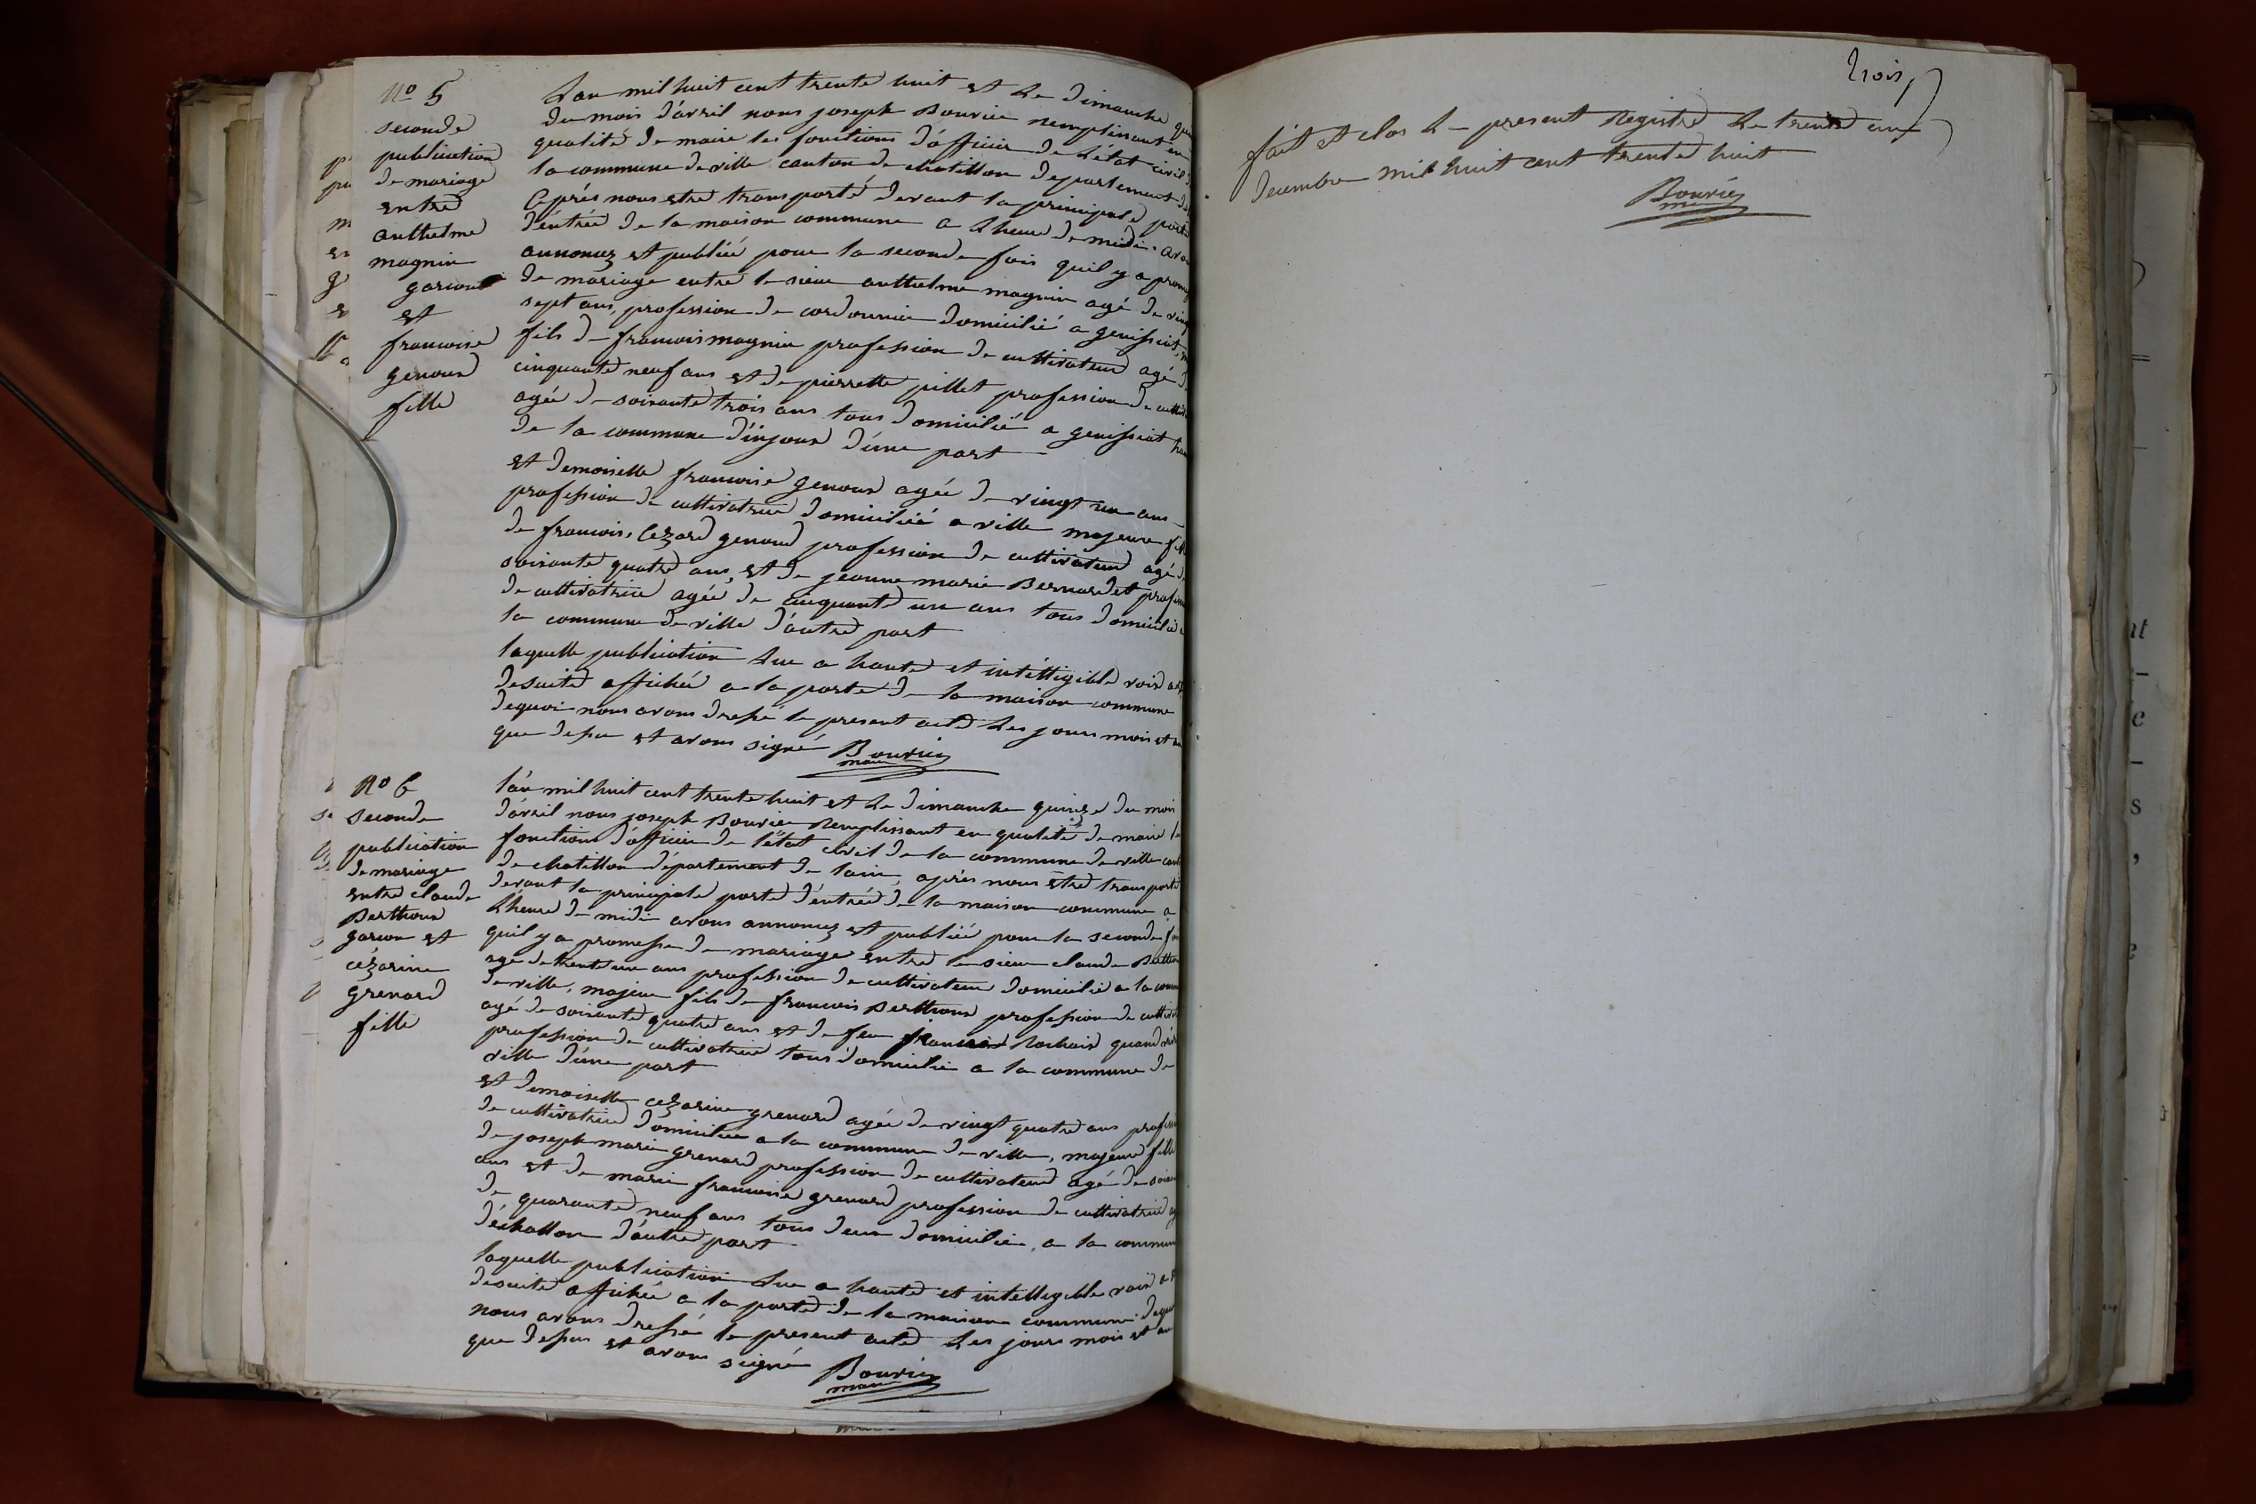 No 5
seconde
publication
de mariage
entre
anthelme
magnin
garcon
et
francoise
genoud
fille
L'an mil huit cent trente huit et le dimanche
du mois d'avril nous joseph Bouvier remplissant en
qualité de maire les fonctions d'officier de l'état civil
la commune de ville canton de chatillon departement
Après nous etre transporté devant la principale porte
d'entrée de la maison commune a l'heure de midi
annoncez et publié pour la seconde fois quil y a
de mariage entre le sieur anthelme magnin agé de
sept ans, profession de cordonnier domicilié a genissiat
fils de francois magnin profession de cultivateur agé
cinquante neuf ans et de pierrette pillet profession de
agée de soixante trois ans tous domicilié a genissiat
de la commune d'injoux d'une part
et demoiselle francoise genoud agée de vingt un ans
profession de cultivatrice domiciliée a ville majeure
de francois, Cezard genoud profession de cultivateur agé
soixante quatre ans, et de jeanne marie Bernardet
de cultivatrice agée de cinquante un ans tous domicilié
la commune de ville d'autre part
laquelle publication lue a haute et intélligible voix
desuite affichée a la porte de la maison commune
dequoi nous avons dressé le present acte les jours mois et
que dessu et avons signé Bouvier
maire
No 6
seconde
publication
de mariage
entre claude
Berthoud
garcon et
cézarine
grenard
fille
l'an mil huit cent trente huit et le dimanche quinze du mois
d'avril nous joseph Bouvier Remplissant en qualité de maire
fonction d'officier de l'état civil de la commune de ville
de chatillon département de lain, après nous être transporté
devant la principale porte d'entrée de la maison commune a
L'heure de midi avons annoncez et publié pour la seconde
quil y a promesse de mariage entre le sieur claude
agé de trente un ans profession de cultivateur domicilié a la
de ville, majeur fils de francois Berthoud profession de
agé de soixante quatre ans et de feu rochaid quand
profession de cultivatrice tous domicilié a la commune de
ville d'une part
et demoiselle cezarine grenard agée de vingt quatre ans
de cultivatrice domiciliée a la commune de ville, majeure fille
de joseph marie grenard profession de cultivateur agé de
ans et de marie francoise grenard profession de cultivatrice
de quarante neuf ans tous deux domicilié, a la
d'échallon d'autre part
laquelle publication lue a haute et intelligible voix
desuite affichée a la porte de la maison commune
nous avons dressé le present acte les jours mois et
que dessus et avons signé
Bouvier
maire
trois
fait et clos le present Registre le trente un
decembre mil huit cent trente huit
Bouvier